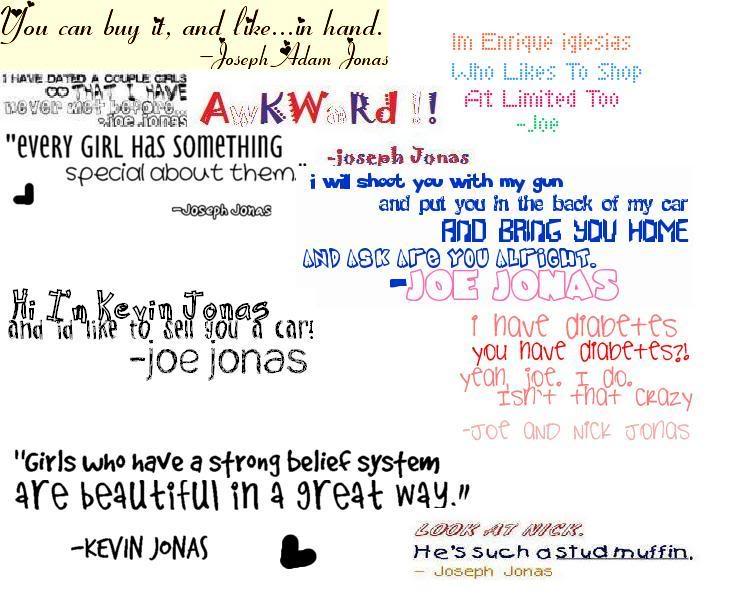 You can buy it, and like...in hand.
-Joseph Adam Jonas
I HAVE DATED A COUPLE GIRLS
THAT I HAVE
never met before...
-Joe Jonas
AWKWaRd !!
-joseph Jonas
Im Enrique iglesias
Who Likes To Shop
At Limited Too
-Joe
"EVERY GIRL HAS SOMETHING
special about them."
-Joseph Jonas
i will shoot you with my gun
and put you in the back of my car
AND BRING YOU HOME
AND ASK ARE YOU ALRIGHT.
-JOE JONAS
Hi I'm Kevin Jonas
and id like to sell you a car!
-joe jonas
i have diabetes
you have diabetes?!
yeah, joe. I do.
isn't that crazy
-JOE AND NICK JONAS
"Girls who have a strong belief system
are beautiful in a great way."
-KEVIN JONAS
LOOK AT NICK.
He's such a stud muffin.
- Joseph Jonas